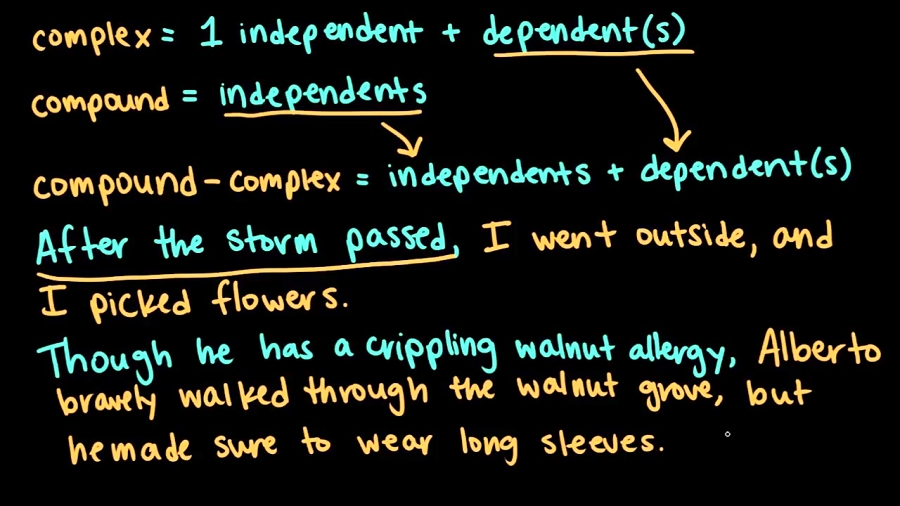 complex = 1 independent + dependent(s)
compound = independents
compound-complex = independents + dependent(s)
After the storm passed, I went outside, and
I picked flowers.
Though he has a crippling walnut allergy, Alberto
bravely walked through the walnut grove, but
he made sure to wear long sleeves.